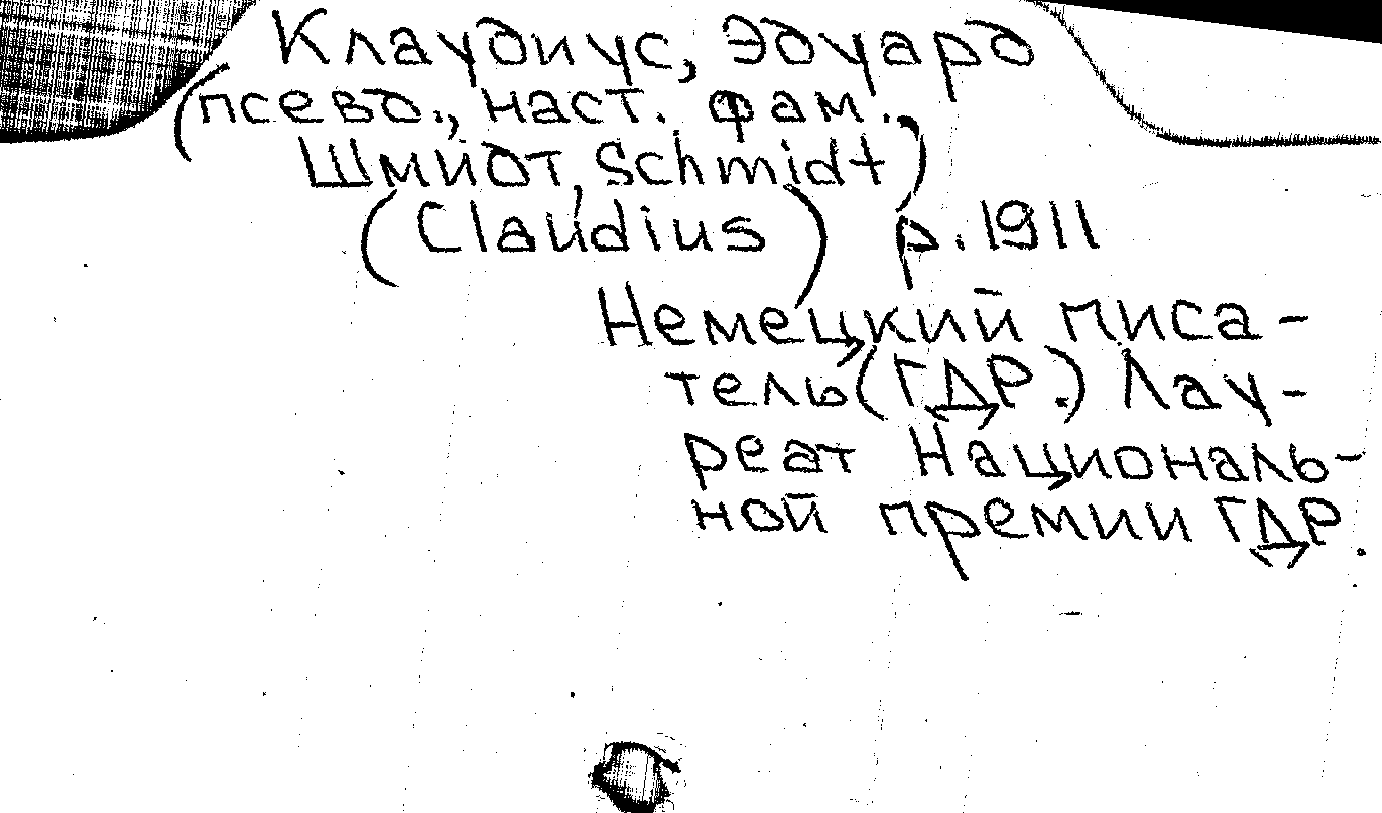 Клаудиус, Эдуард
(псевд., наст. фам.,
Шмидт, Schmidt)
(Claudius) р. 1911
Немецкий писа-
тель (ГДР.) Лау-
реат Националь-
ной премии ГДР.